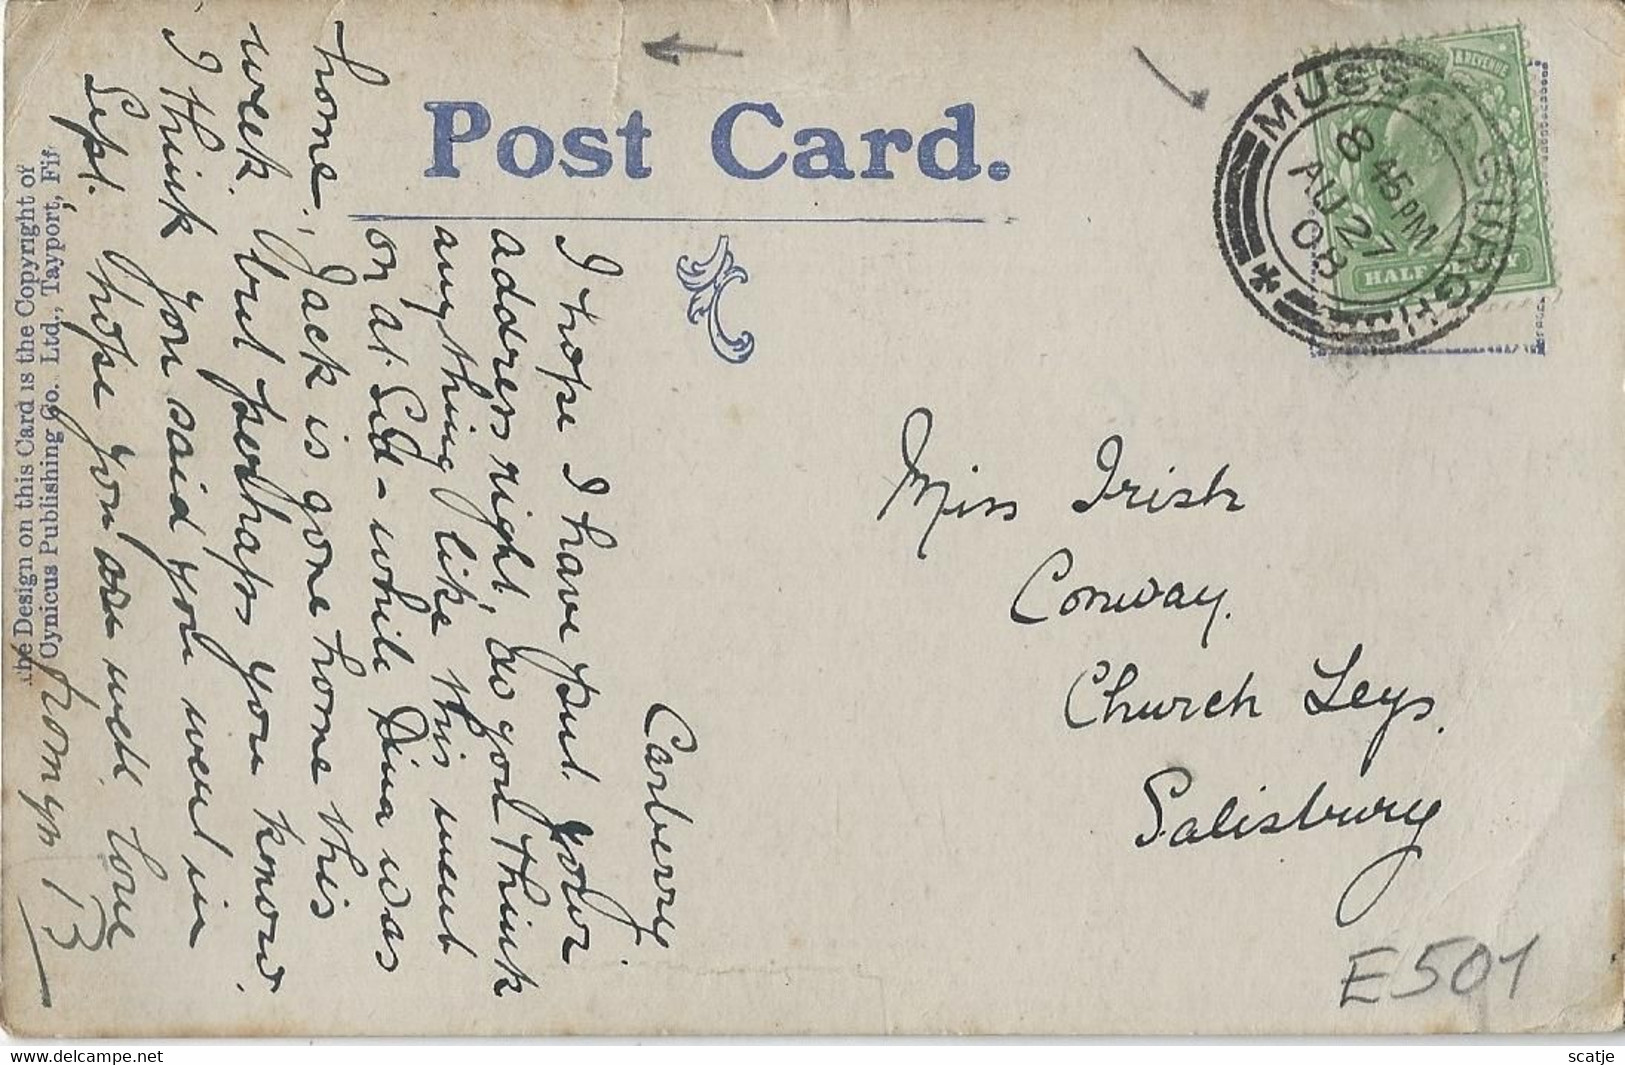 Post Card.
MUSSELBURGH
8 45 PM
AU 27
08
HALF PENNY
Miss Irish
Conway.
Church Leys.
Salisbury
E501
Carberry
I hope I have put your
address right, do you think
anything like this went
on at Sid - while Dina was
home; Jack is gone home this
week. but perhaps you know.
I think you said you went in
Sept. I hope you are well. love
from yrs B
The Design on this Card is the Copyright of
Cynicus Publishing Co. Ltd., Tayport, Fif
scatje